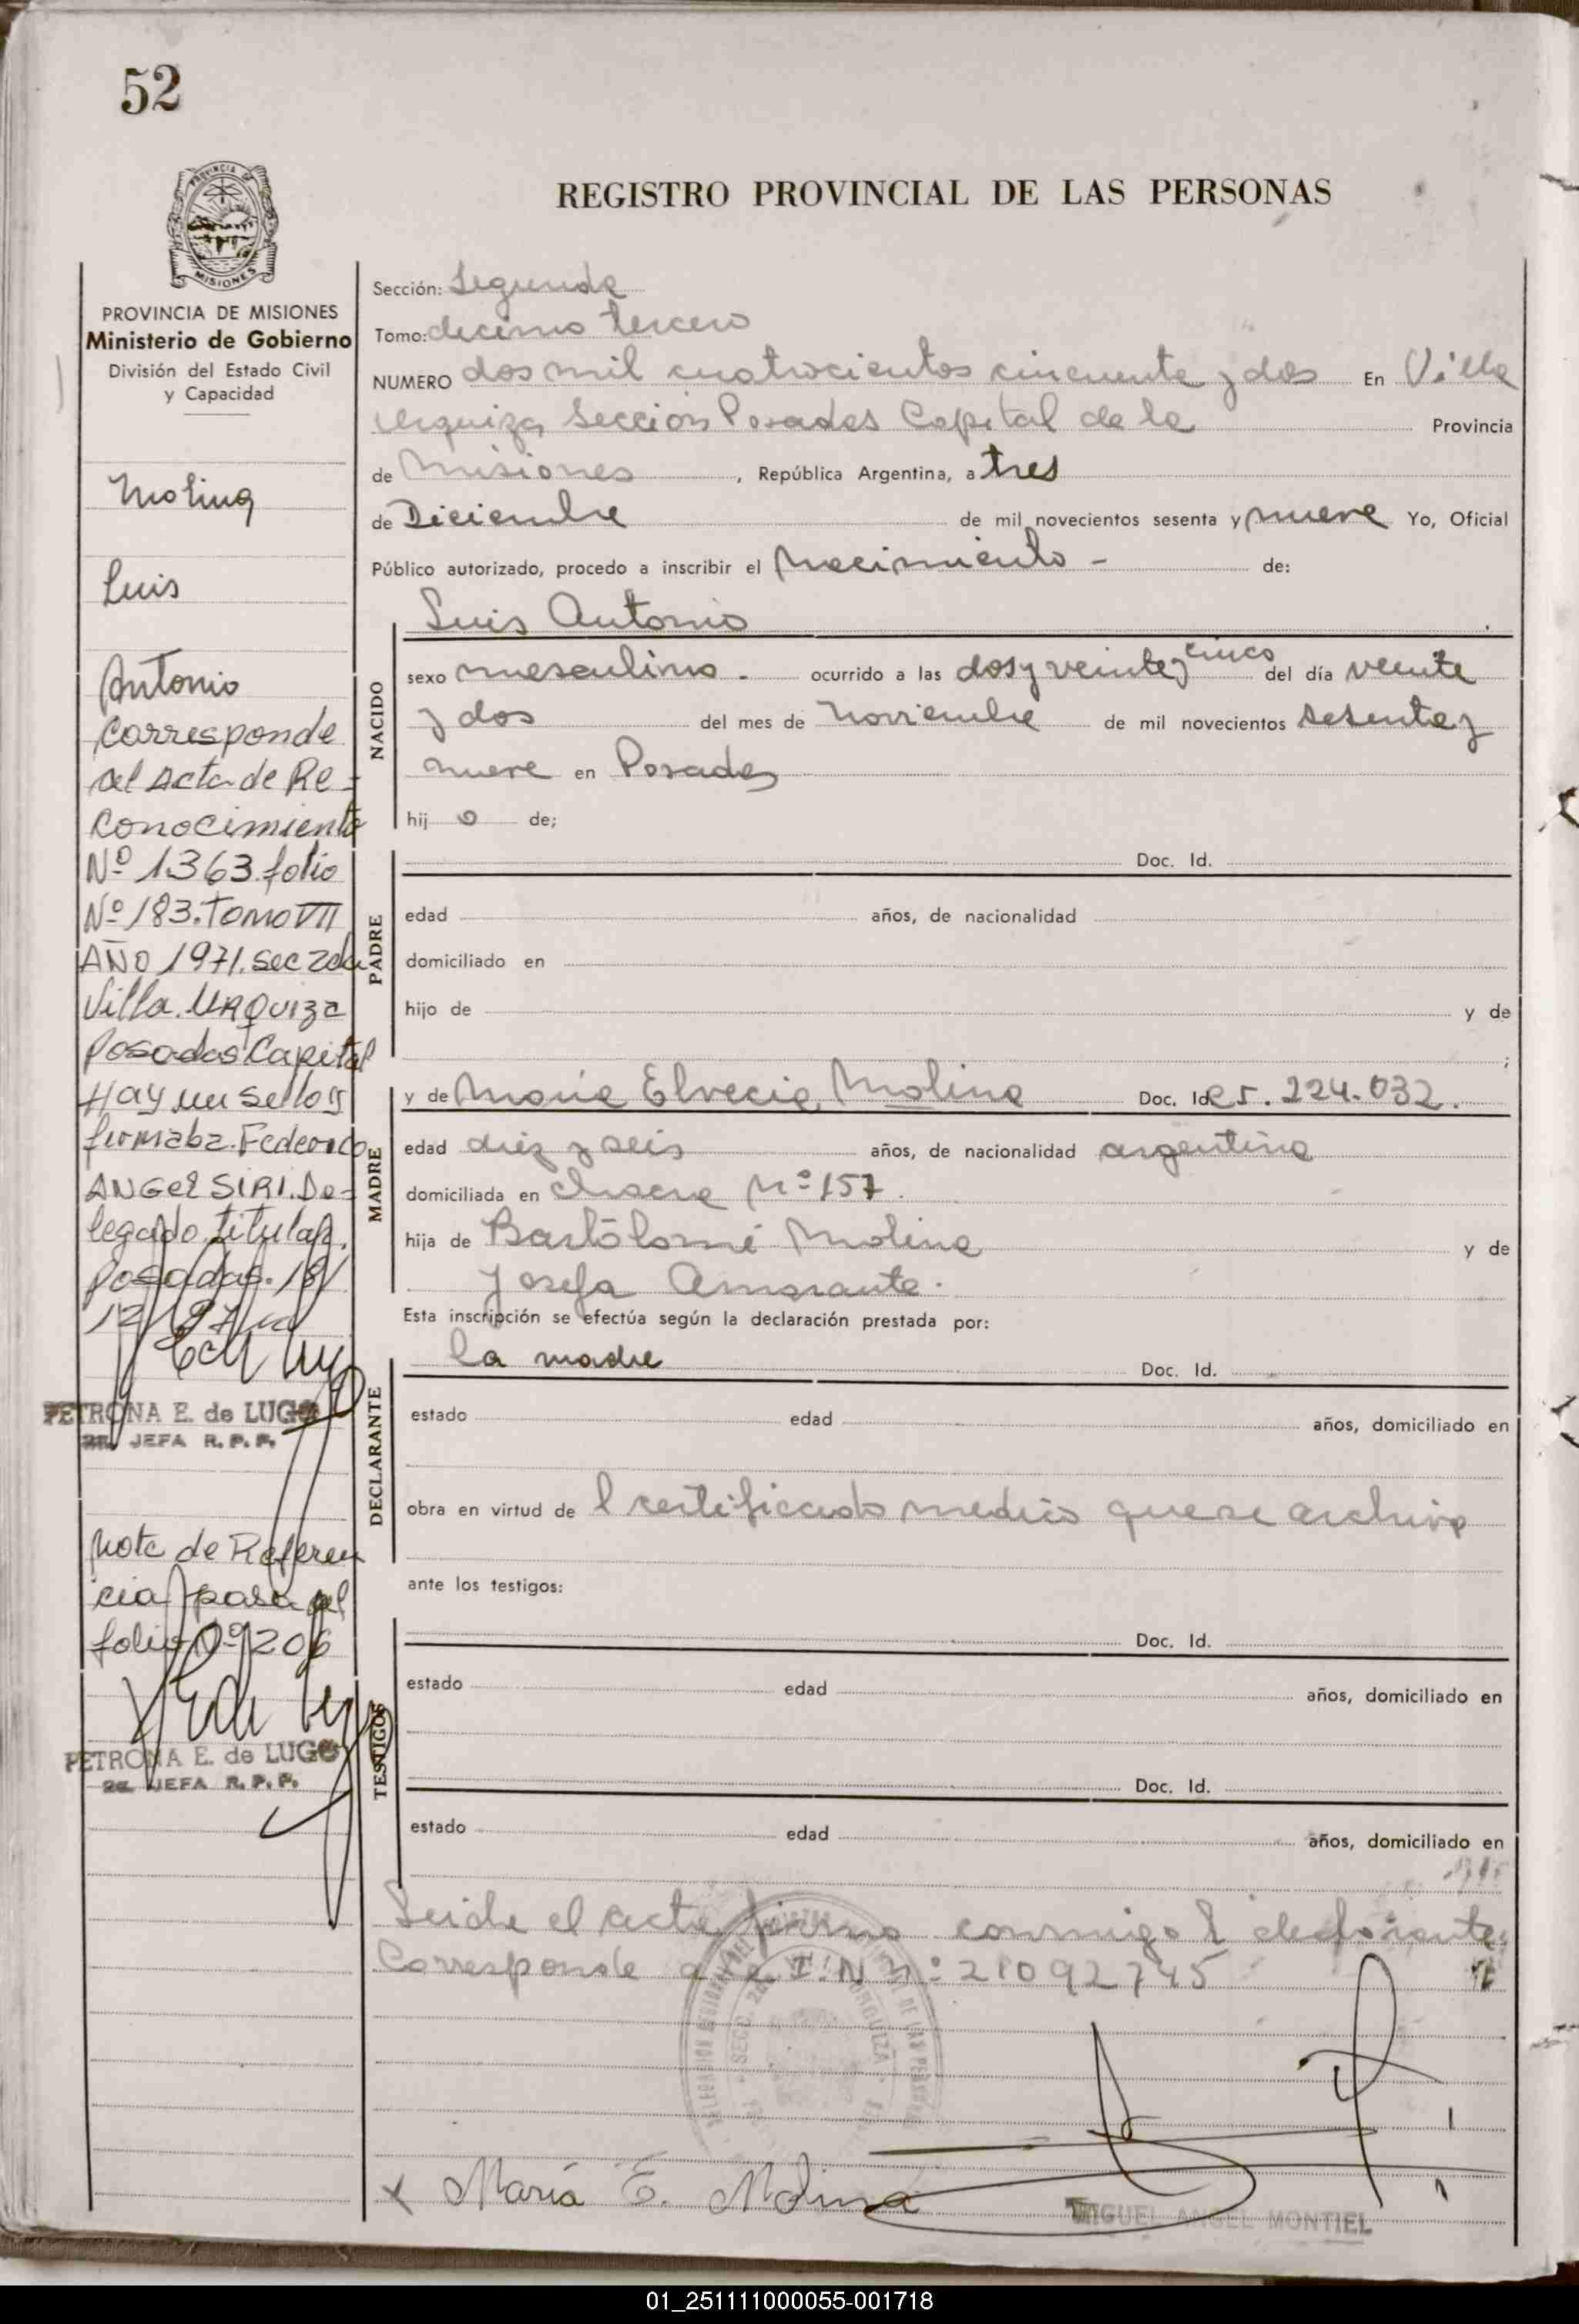 52
PROVINCIA DE
MISIONES
PROVINCIA DE MISIONES
Ministerio de Gobierno
División del Estado Civil
y Capacidad
Molina
Luis
Antonio
Corresponde
al Acta de Re-
conocimiento
Nº 1363 folio
Nº 183. Tomo VII
AÑO 1971. sec 2da
Villa. URQUIZA
Posadas Capital
Hay un sello y
firmaba. Federico
ANGel SIRI. De-
legado titular.
Posadas. 18/
PETRONA E. de LUGO
2a. JEFA R. P. P.
Nota de Referen
cia pasa al
folio Nº 206
PETRONA E. de LUGO
2a. JEFA R. P. P.
REGISTRO PROVINCIAL DE LAS PERSONAS
Sección: Segunda
Tomo: decimo tercero
NUMERO dos mil cuatrocientos cincuenta y dos En Villa
Urquiza Sección Posadas Capital de la Provincia
de Misiones, República Argentina, a tres
de Diciembre de mil novecientos sesenta y nueve Yo, Oficial
Público autorizado, procedo a inscribir el Nacimiento - de:
Luis Antonio
NACIDO
sexo masculino - ocurrido a las dos y veinte y cinco del día veinte
y dos del mes de Noviembre de mil novecientos sesenta y
nueve en Posadas
hij o de;
PADRE
Doc. Id.
edad años, de nacionalidad
domiciliado en
hijo de y de
;
MADRE
y de María Elvecia Molina Doc. Id. C 5.224.032.
edad diez y seis años, de nacionalidad argentina
domiciliada en Chacra Nº 157.
hija de Bartólomé Molina y de
Josefa Amarante.
Esta inscripción se efectúa según la declaración prestada por:
DECLARANTE
la madre Doc. Id.
estado edad años, domiciliado en
obra en virtud de l certificado medico que se archiva
ante los testigos:
TESTIGOS
Doc. Id.
estado edad años, domiciliado en
Doc. Id.
estado edad años, domiciliado en
Leida el acta firma conmigo l declarante.
Corresponde a la I. N Nº: 21092745
SECC. 2a. URQUIZA
x María E. Molina
MIGUEL ANGEL MONTIEL
01_251111000055-001718